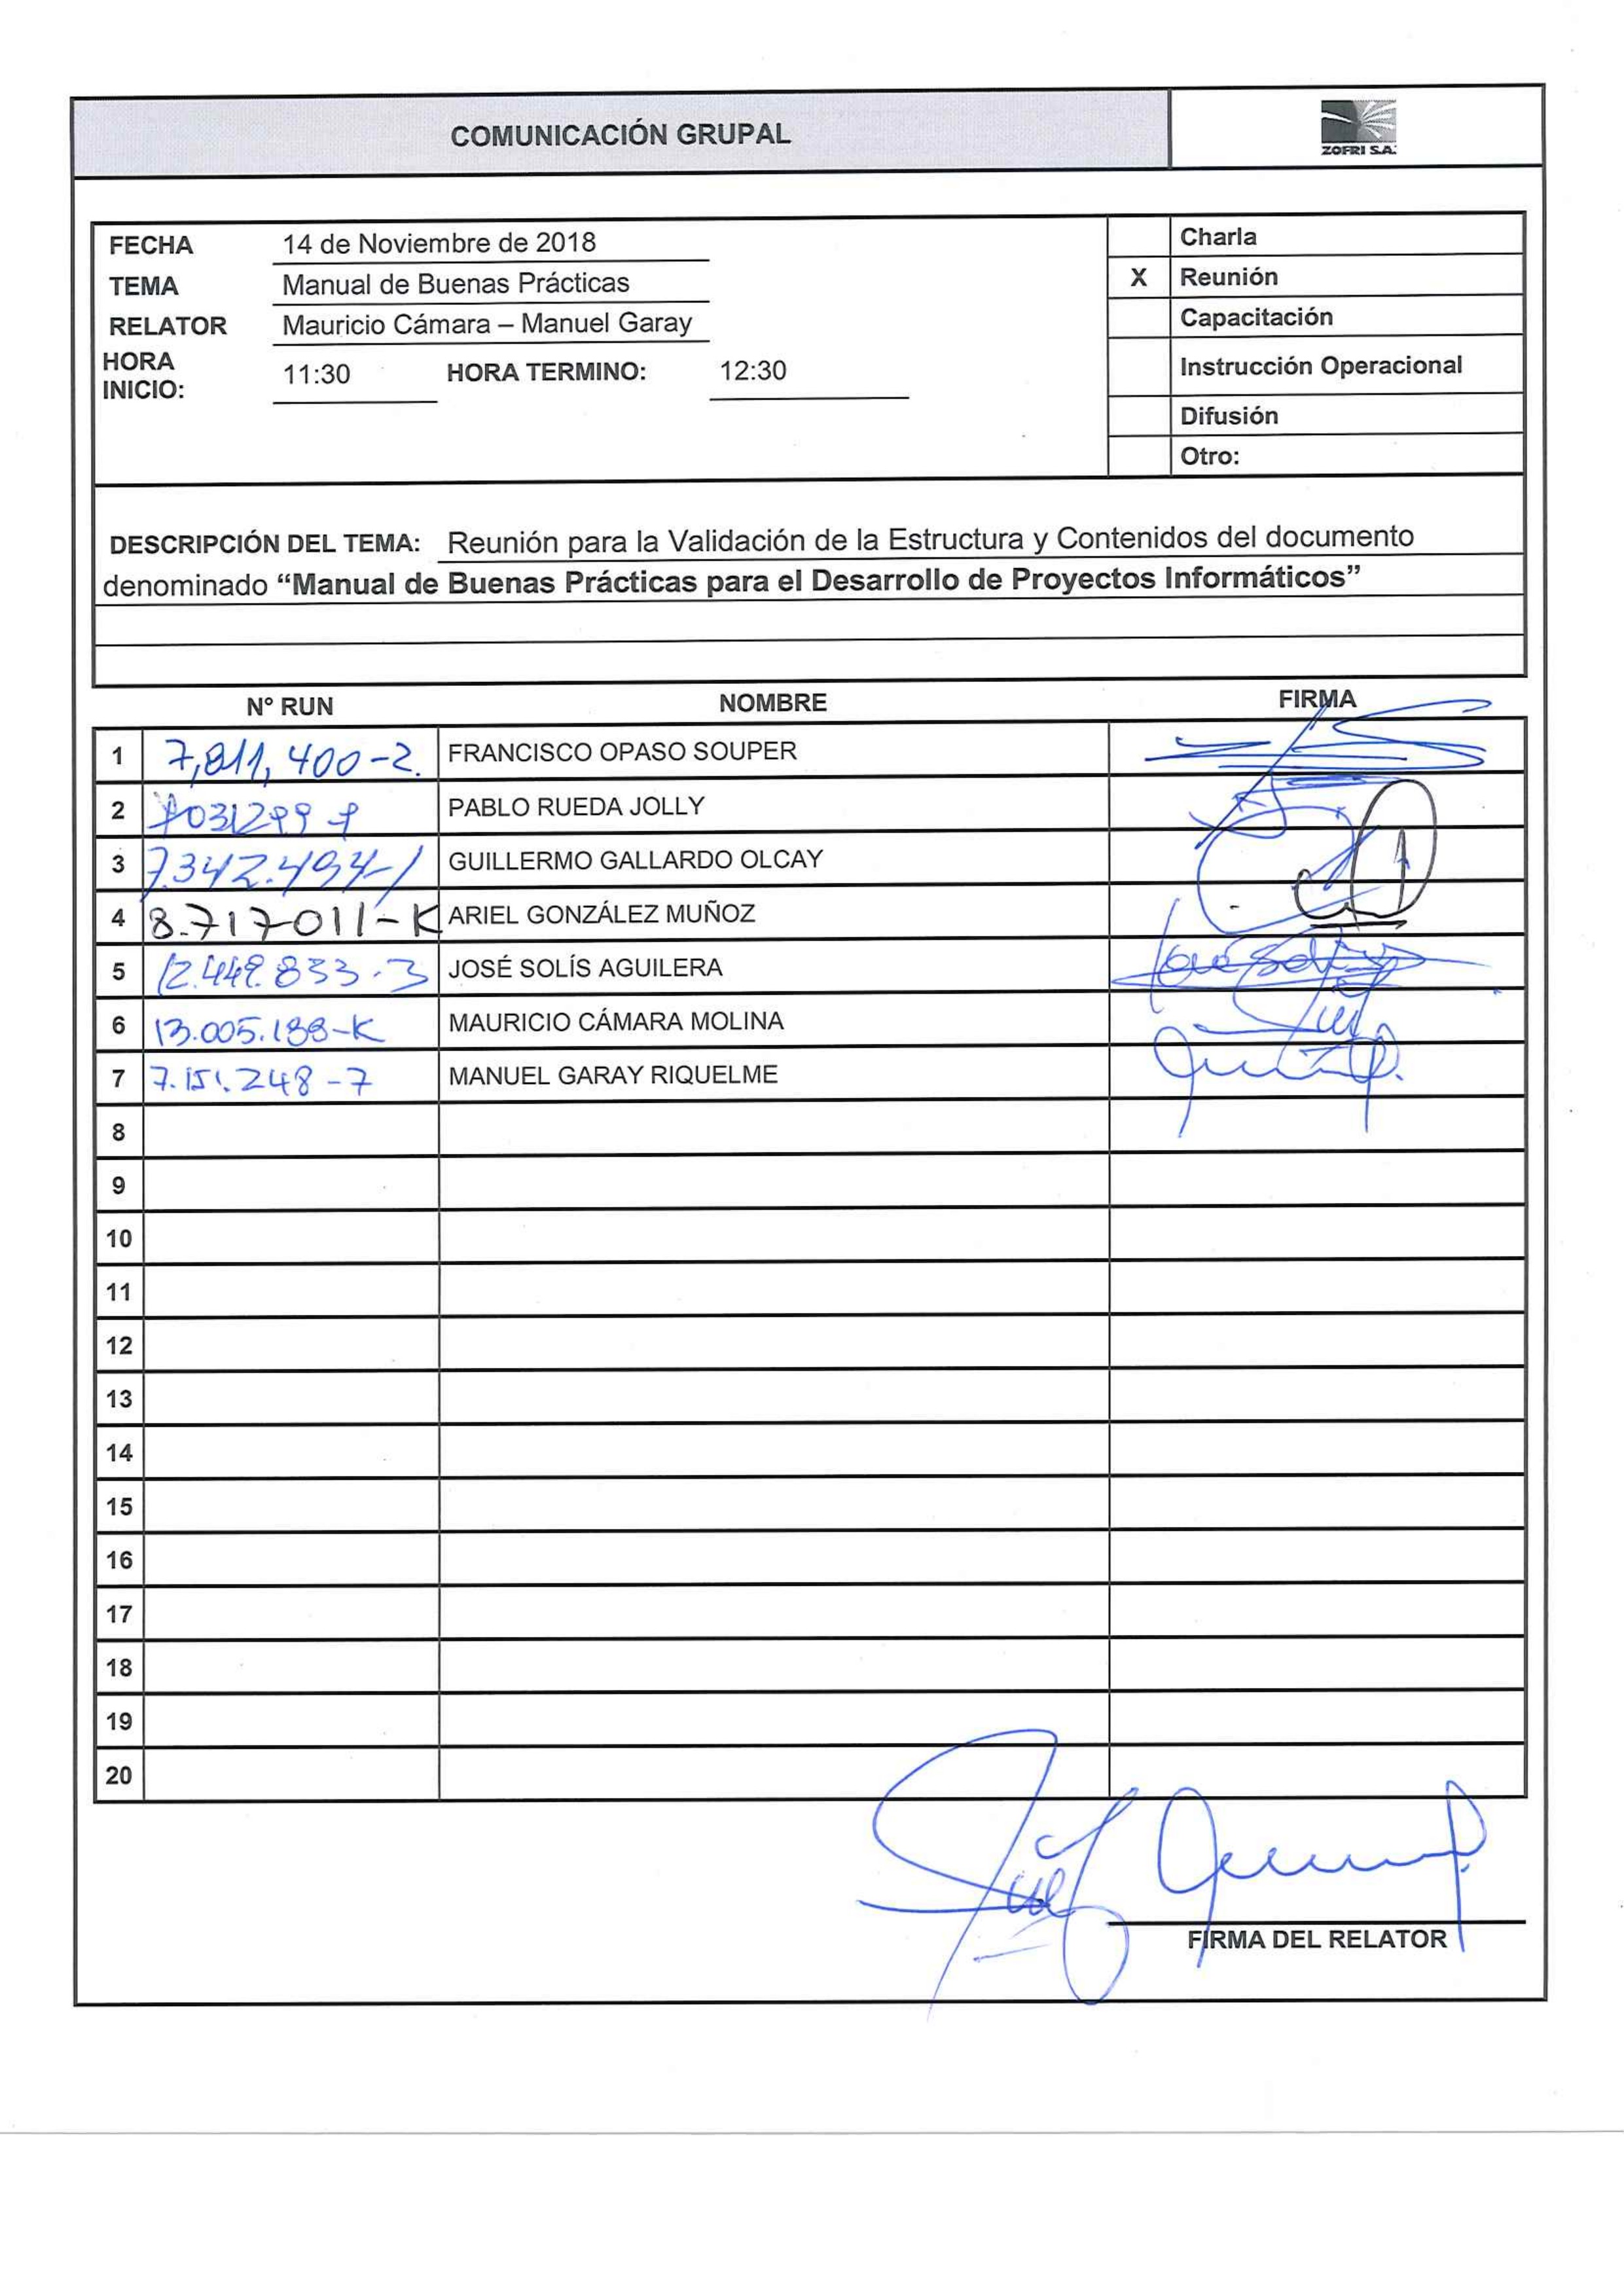 COMUNICACIÓN GRUPAL
ZOFRI S.A.
FECHA 14 de Noviembre de 2018
TEMA Manual de Buenas Prácticas
RELATOR Mauricio Cámara – Manuel Garay
HORA INICIO: 11:30 HORA TERMINO: 12:30
Charla
X Reunión
Capacitación
Instrucción Operacional
Difusión
Otro:
DESCRIPCIÓN DEL TEMA: Reunión para la Validación de la Estructura y Contenidos del documento
denominado “Manual de Buenas Prácticas para el Desarrollo de Proyectos Informáticos”
N° RUN NOMBRE FIRMA
1 7,811,400-2. FRANCISCO OPASO SOUPER
2 PABLO RUEDA JOLLY
3 7.342.494-1 GUILLERMO GALLARDO OLCAY
4 8.717-011-K ARIEL GONZÁLEZ MUÑOZ
5 12.449.833-3 JOSÉ SOLÍS AGUILERA
6 13.005.188-K MAURICIO CÁMARA MOLINA
7 7.151.248-7 MANUEL GARAY RIQUELME
8
9
10
11
12
13
14
15
16
17
18
19
20
FIRMA DEL RELATOR